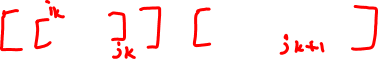 [ [ iₖ ]jₖ ] [ jₖ₊₁ ]